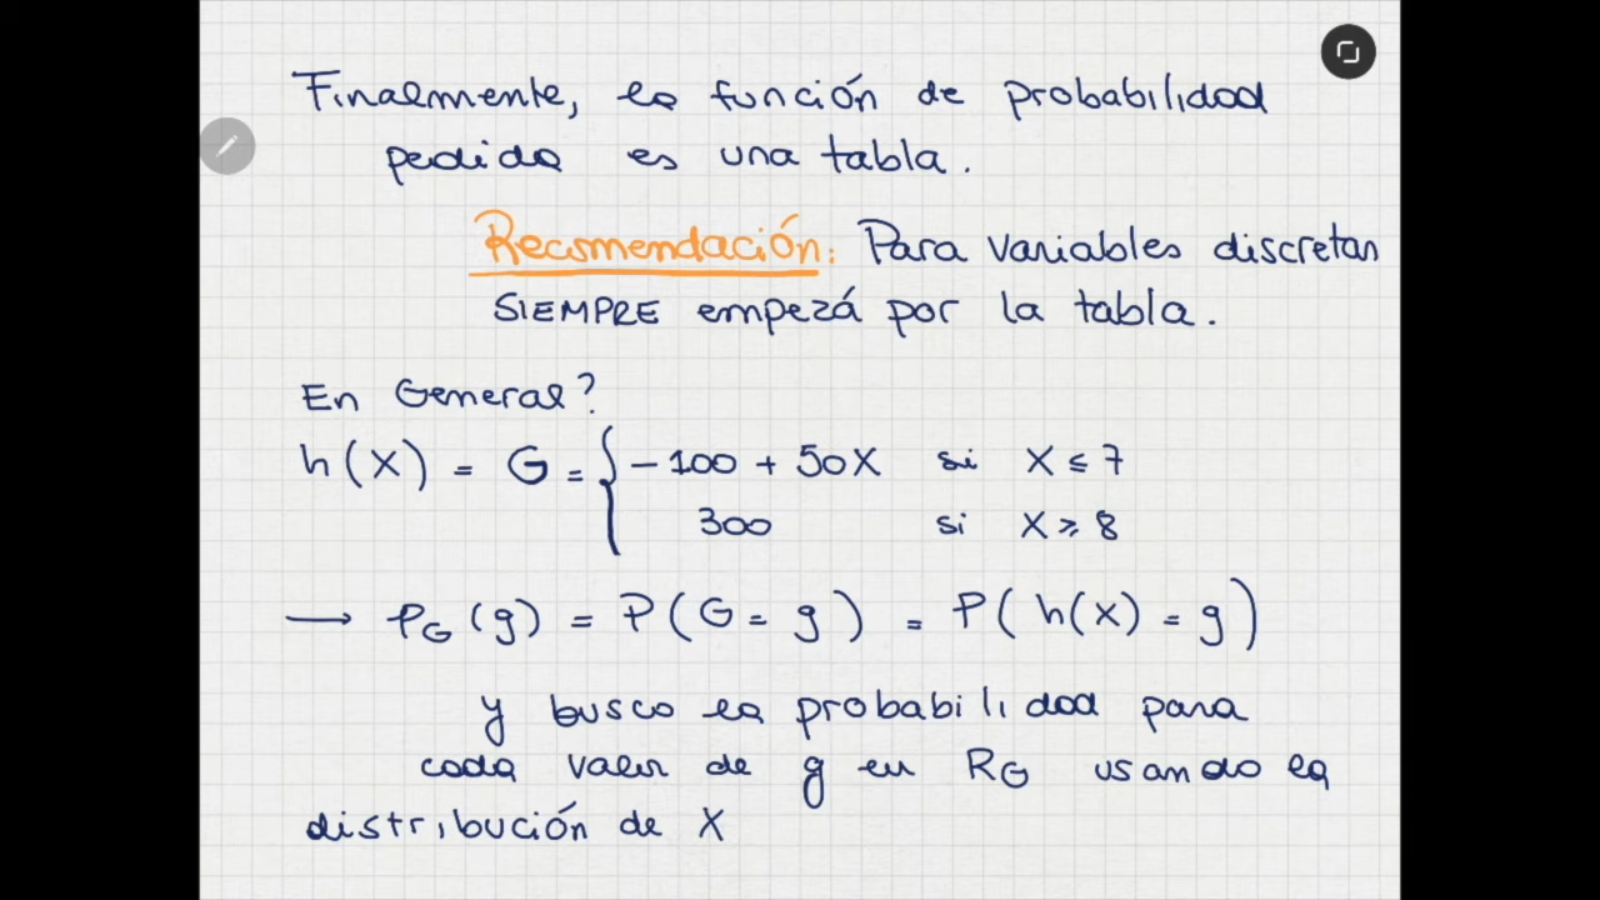 Finalmente, la función de probabilidad
pedida es una tabla.
Recomendación: Para variables discretas
SIEMPRE empezá por la tabla.
En General?
h(X) = G = { -100 + 50X si X ≤ 7
300 si X ≥ 8
→ p_G(g) = P(G = g) = P(h(x) = g)
y busco la probabilidad para
cada valor de g en R_G usando la
distribución de X